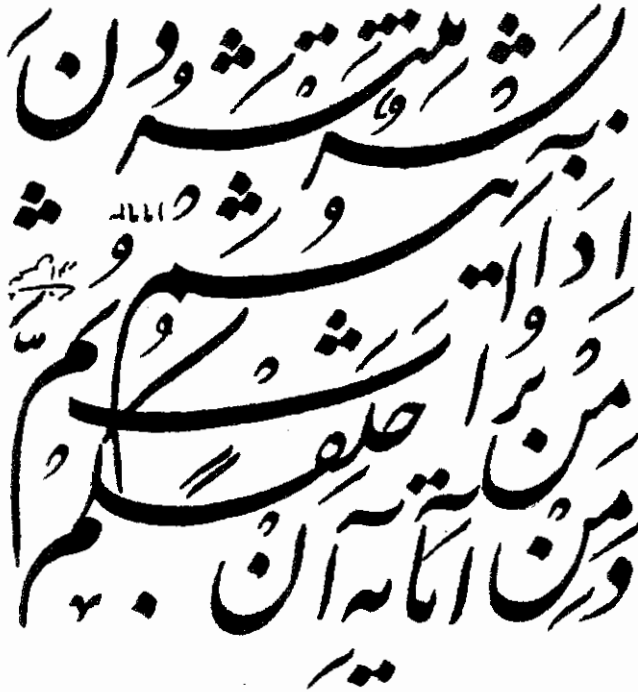 وَمِنْ آيَاتِهِ أَنْ
خَلَقَكُمْ مِنْ تُرَابٍ ثُمَّ
إِذَا أَنْتُمْ بَشَرٌ
تَنْتَشِرُونَ